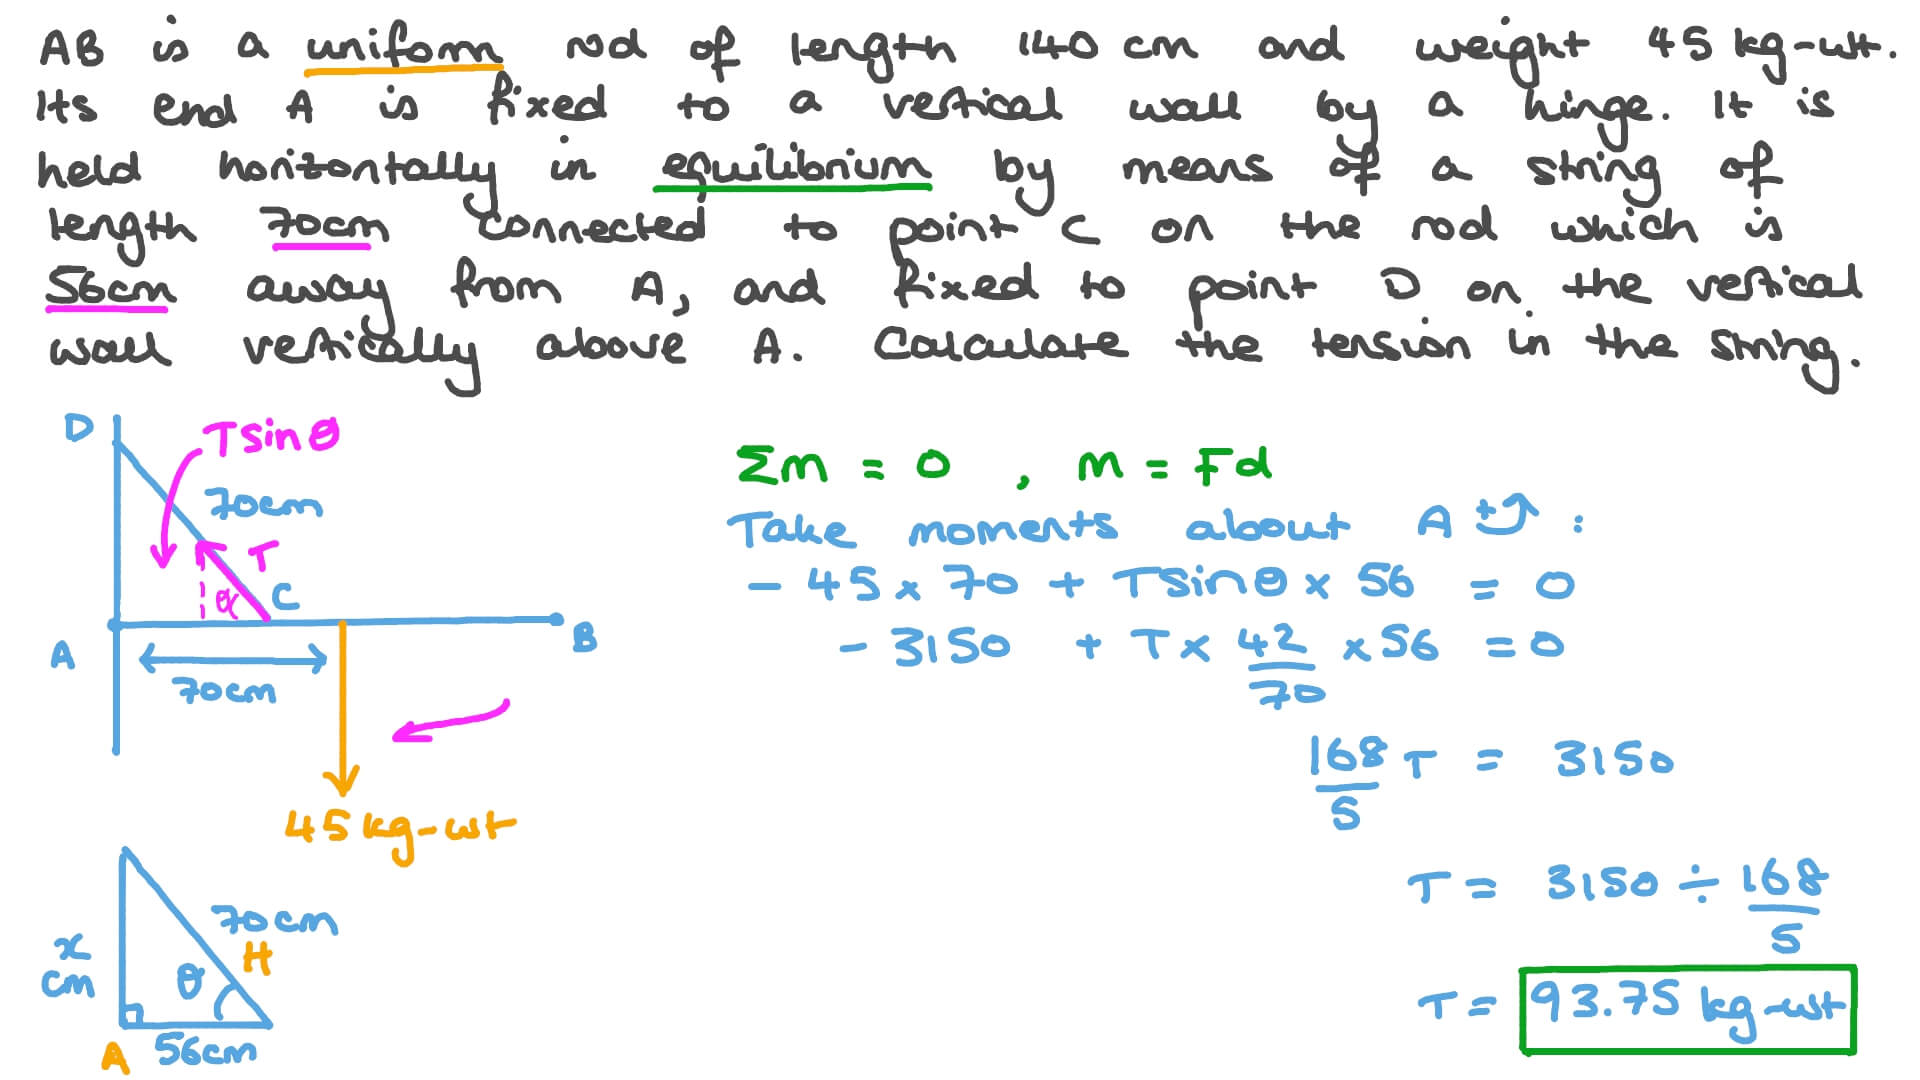 AB is a uniform rod of length 140 cm and weight 45 kg-wt.
Its end A is fixed to a vertical wall by a hinge. It is
held horizontally in equilibrium by means of a string of
length 70cm connected to point C on the rod which is
56cm away from A, and fixed to point D on the vertical
wall vertically above A. Calculate the tension in the string.
D
Tsinθ
70cm
T
θ
C
A
B
70cm
45 kg-wt
x
cm
70cm
H
θ
A
56cm
Σm = 0 , m = Fd
Take moments about A + :
- 45 x 70 + Tsinθ x 56 = 0
- 3150 + T x 42/70 x 56 = 0
168/5 T = 3150
T = 3150 ÷ 168/5
T = 93.75 kg-wt